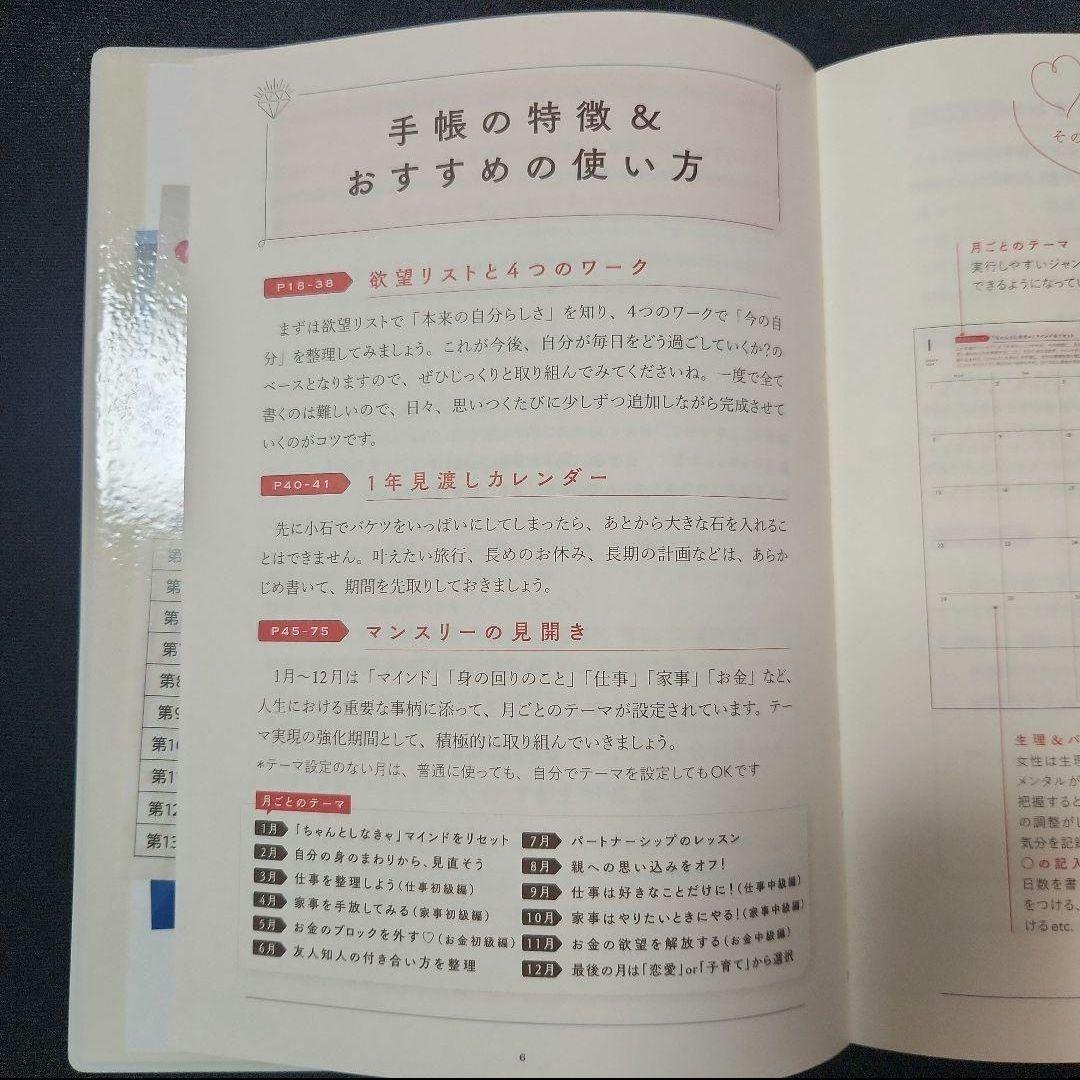 手帳の特徴&
おすすめの使い方
P18-38 欲望リストと4つのワーク
まずは欲望リストで「本来の自分らしさ」を知り、4つのワークで「今の自
分」を整理してみましょう。これが今後、自分が毎日をどう過ごしていくか?の
ベースとなりますので、ぜひじっくりと取り組んでみてくださいね。一度で全て
書くのは難しいので、日々、思いつくたびに少しずつ追加しながら完成させて
いくのがコツです。
P40-41 1年見渡しカレンダー
先に小石でバケツをいっぱいにしてしまったら、あとから大きな石を入れるこ
とはできません。叶えたい旅行、長めのお休み、長期の計画などは、あらか
じめ書いて、期間を先取りしておきましょう。
P45-75 マンスリーの見開き
1月〜12月は「マインド」「身の回りのこと」「仕事」「家事」「お金」など、
人生における重要な事柄に添って、月ごとのテーマが設定されています。テー
マ実現の強化期間として、積極的に取り組んでいきましょう。
*テーマ設定のない月は、普通に使っても、自分でテーマを設定してもOKです
月ごとのテーマ
1月 「ちゃんとしなきゃ」マインドをリセット
2月 自分の身のまわりから、見直そう
3月 仕事を整理しよう(仕事初級編)
4月 家事を手放してみる(家事初級編)
5月 お金のブロックを外す♡(お金初級編)
6月 友人知人の付き合い方を整理
7月 パートナーシップのレッスン
8月 親への思い込みをオフ!
9月 仕事は好きなことだけに!(仕事中級編)
10月 家事はやりたいときにやる!(家事中級編)
11月 お金の欲望を解放する(お金中級編)
12月 最後の月は「恋愛」or「子育て」から選択
6
その
月ごとのテーマ
実行しやすいジャン
できるようになってい
生理&バ
女性は生理
メンタルが
把握すると
の調整がし
気分を記録
○の記入
日数を書
をつける、
けるetc.
第
第
第
第7
第8
第9
第10
第11
第12
第13